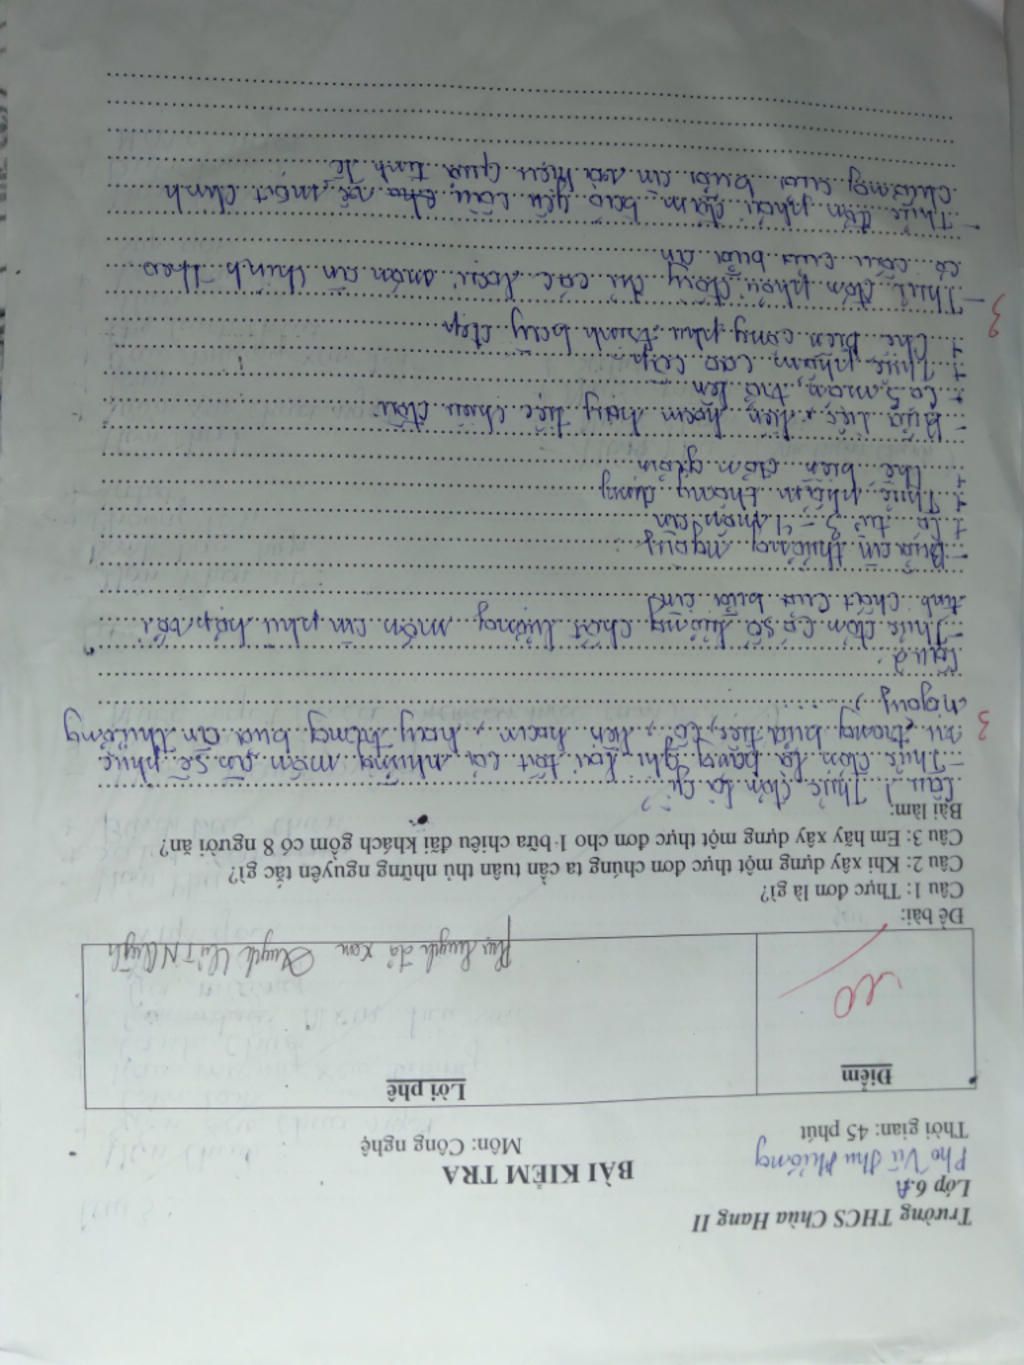 Trường THCS Chùa Hang II
Lớp 6.A
Phó Vũ Thu Phương
BÀI KIỂM TRA
Thời gian: 45 phút
Môn: Công nghệ
Điểm
Lời phê
10
Phụ huynh đã xem
Đề bài:
Câu 1: Thực đơn là gì?
Câu 2: Khi xây dựng một thực đơn chúng ta cần tuân thủ những nguyên tắc gì?
Câu 3: Em hãy xây dựng một thực đơn cho 1 bữa chiêu đãi khách gồm có 8 người ăn?
Bài làm:
Câu 1 Thực đơn là gì?
- Thực đơn là bảng ghi lại tất cả những món ăn sẽ phục
vụ trong bữa tiệc, cỗ, liên hoan, hay trong bữa ăn thường
3
ngày
Câu 2:
- Thực đơn có số lượng chất lượng món ăn phù hợp với
tính chất của bữa ăn
- Bữa ăn thường ngày
+ Có từ 3 - 4 món ăn
+ Thực phẩm thông dụng
+ Chế biến đơn giản
- Bữa tiệc, liên hoan hay tiệc chiêu đãi
+ Có 5 món trở lên
+ Thực phẩm cao cấp
+ Chế biến công phu trình bày đẹp
3
- Thực đơn phải đầy đủ các loại món ăn chính theo
cơ cấu của bữa ăn
- Thực đơn phải đảm bảo yêu cầu về mặt dinh
dưỡng của bữa ăn và hiệu quả kinh tế